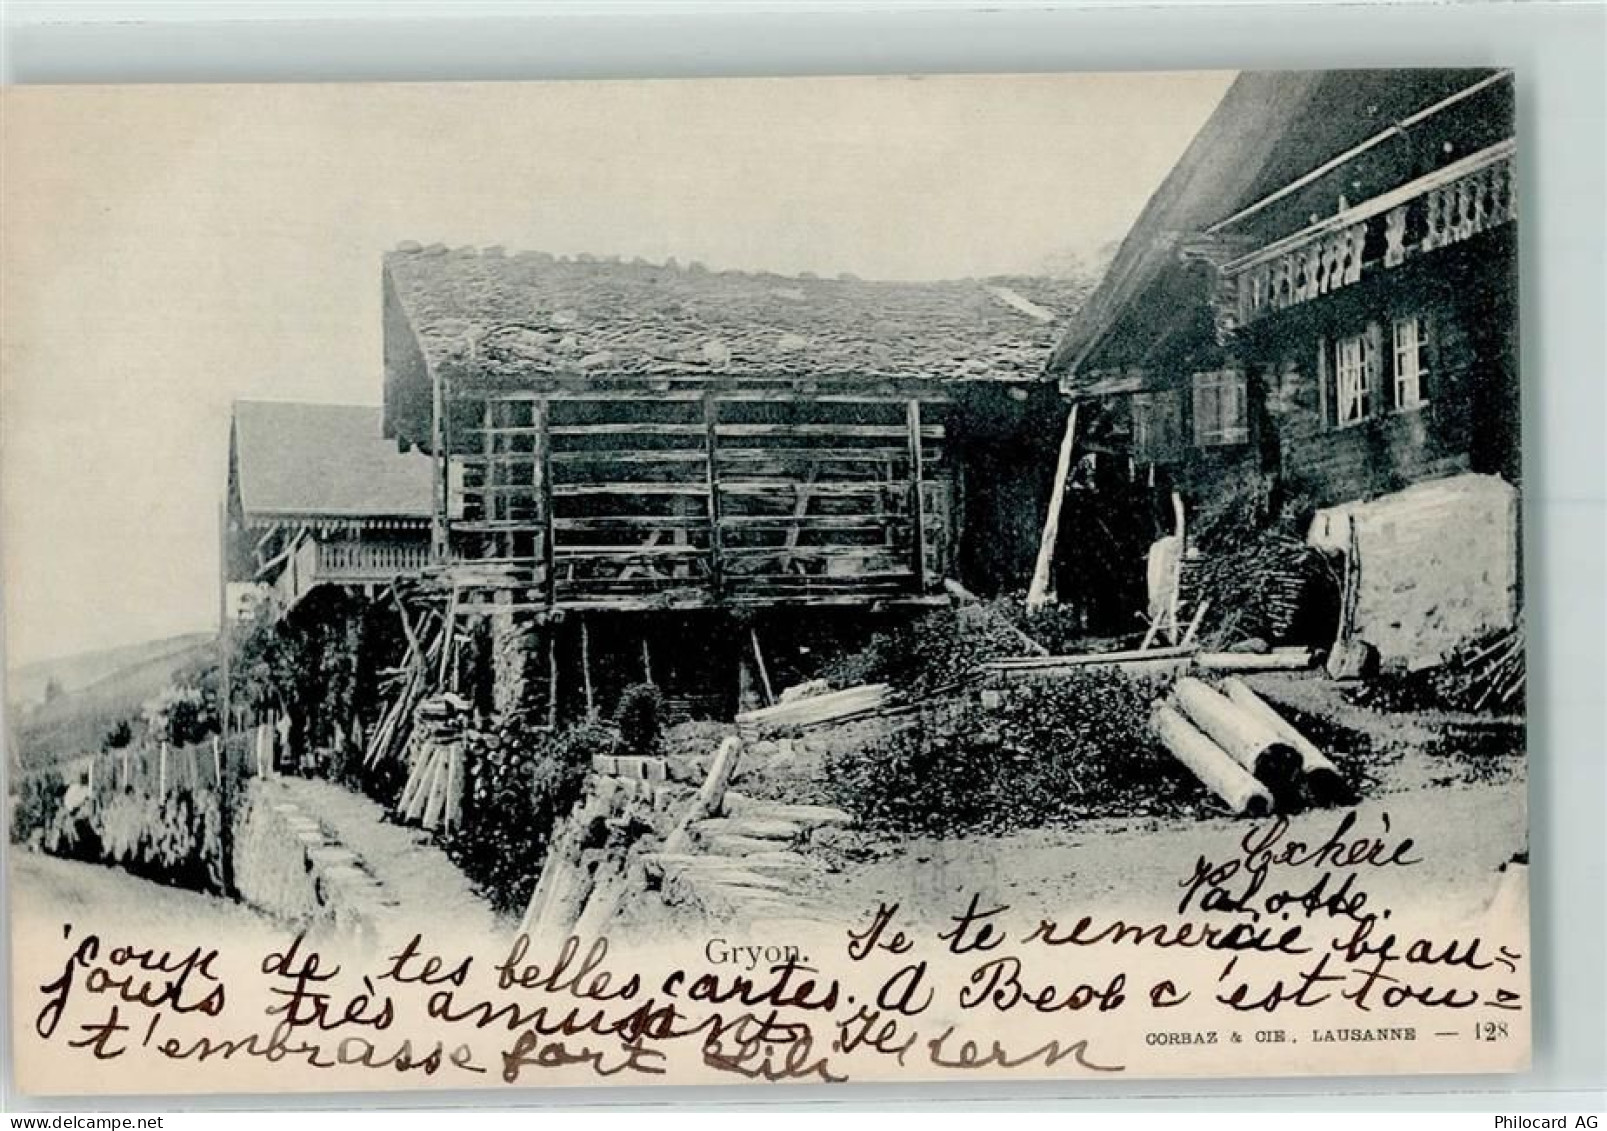 Chère
Valotte.
Gryon.
Je te remercie beau-
coup de tes belles cartes. A Beob c'est tou-
jours très amusant. Je
t'embrasse fort Lili Kern
CORBAZ & CIE. LAUSANNE — 128
Philocard AG